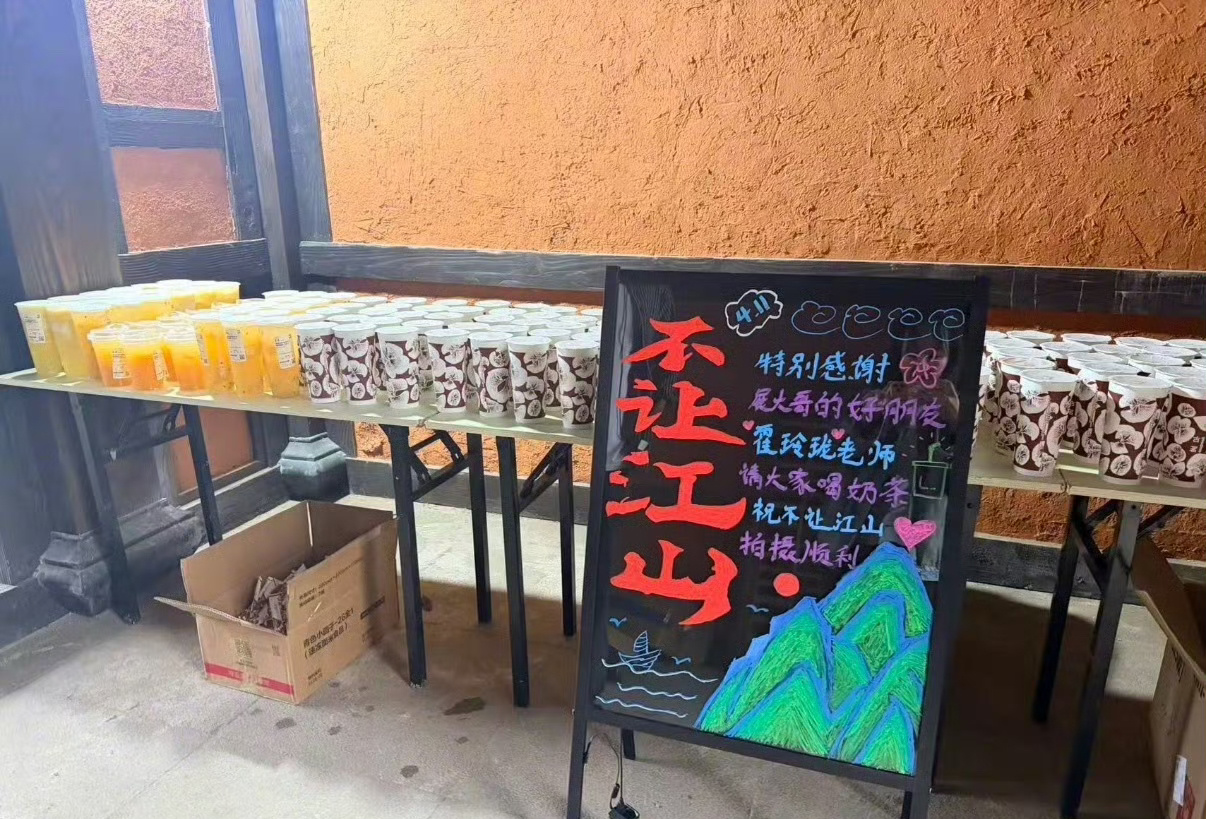 4.11
不让江山
特别感谢
展大哥的好朋友
霍玲珑老师
请大家喝奶茶
祝不让江山
拍摄顺利